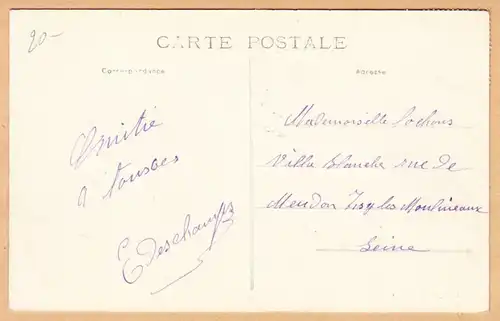 20-
CARTE POSTALE
Correspondance
Adresse
Amitié
à tous
E Deschamps
Mademoiselle
Villa Blanche rue de
Meudon Issy les Moulineaux
Seine